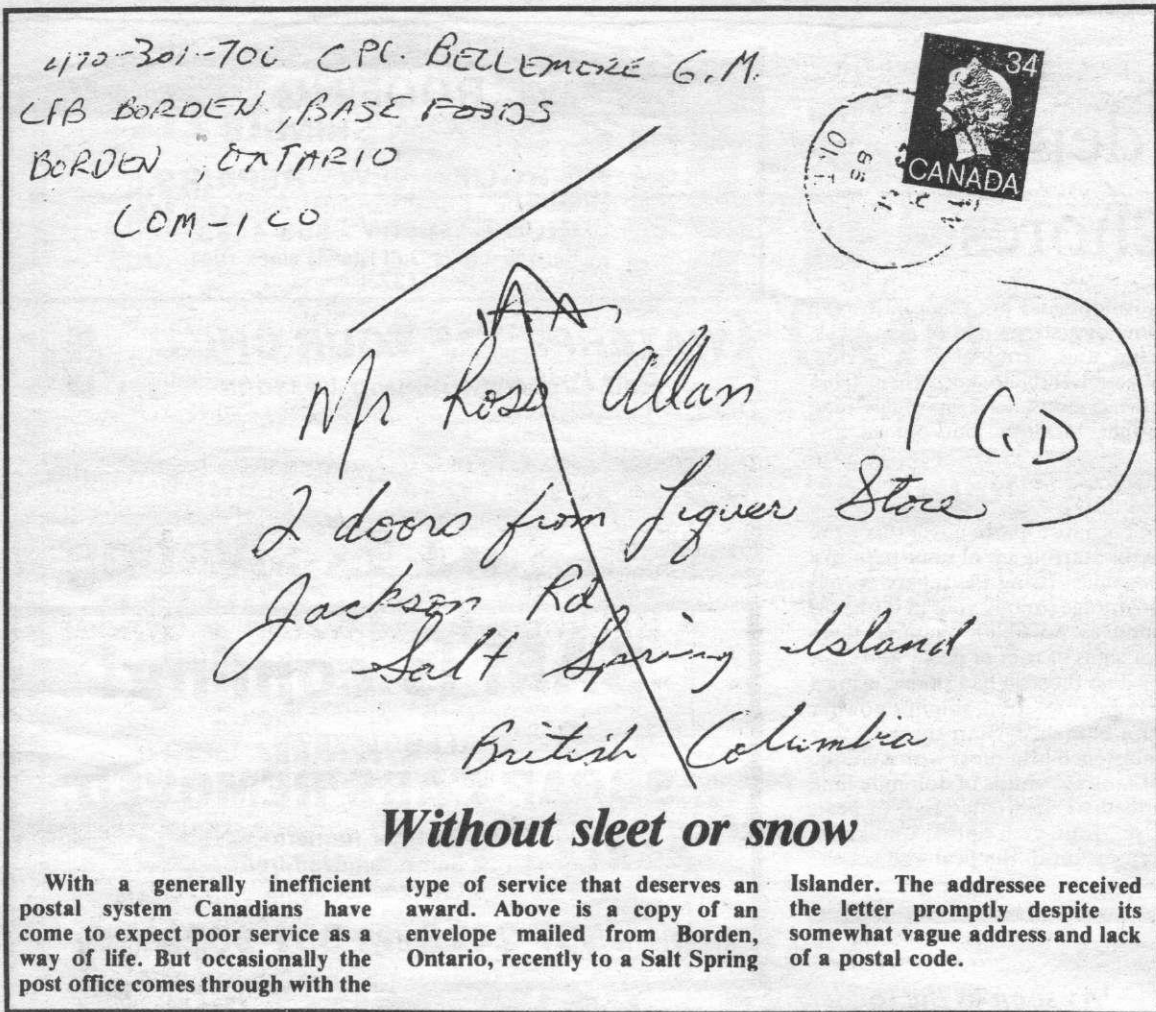 CPL. BELLEMORE G.M.
CFB BORDEN, BASE FOODS
BORDEN, ONTARIO
LOM-1CO
34
CANADA
ONT
Mr Ross Allan
2 doors from Liquer Store
Jackson Rd
Salt Spring Island
British Columbia
Without sleet or snow
With a generally inefficient
postal system Canadians have
come to expect poor service as a
way of life. But occasionally the
post office comes through with the
type of service that deserves an
award. Above is a copy of an
envelope mailed from Borden,
Ontario, recently to a Salt Spring
Islander. The addressee received
the letter promptly despite its
somewhat vague address and lack
of a postal code.